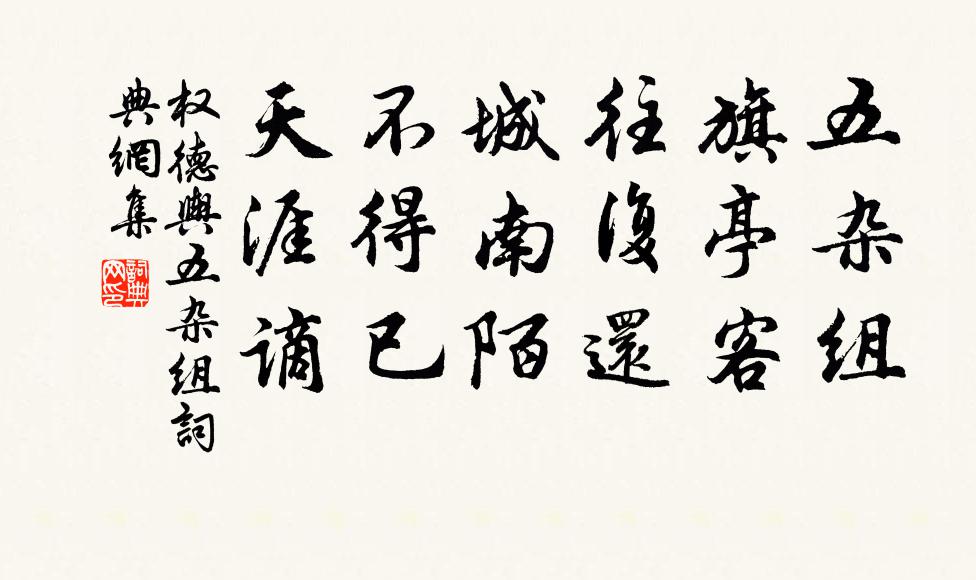 五杂组
旗亭客
往復還
城南陌
不得已
天涯謫
权德輿五杂组詞
典網集
詞典网印